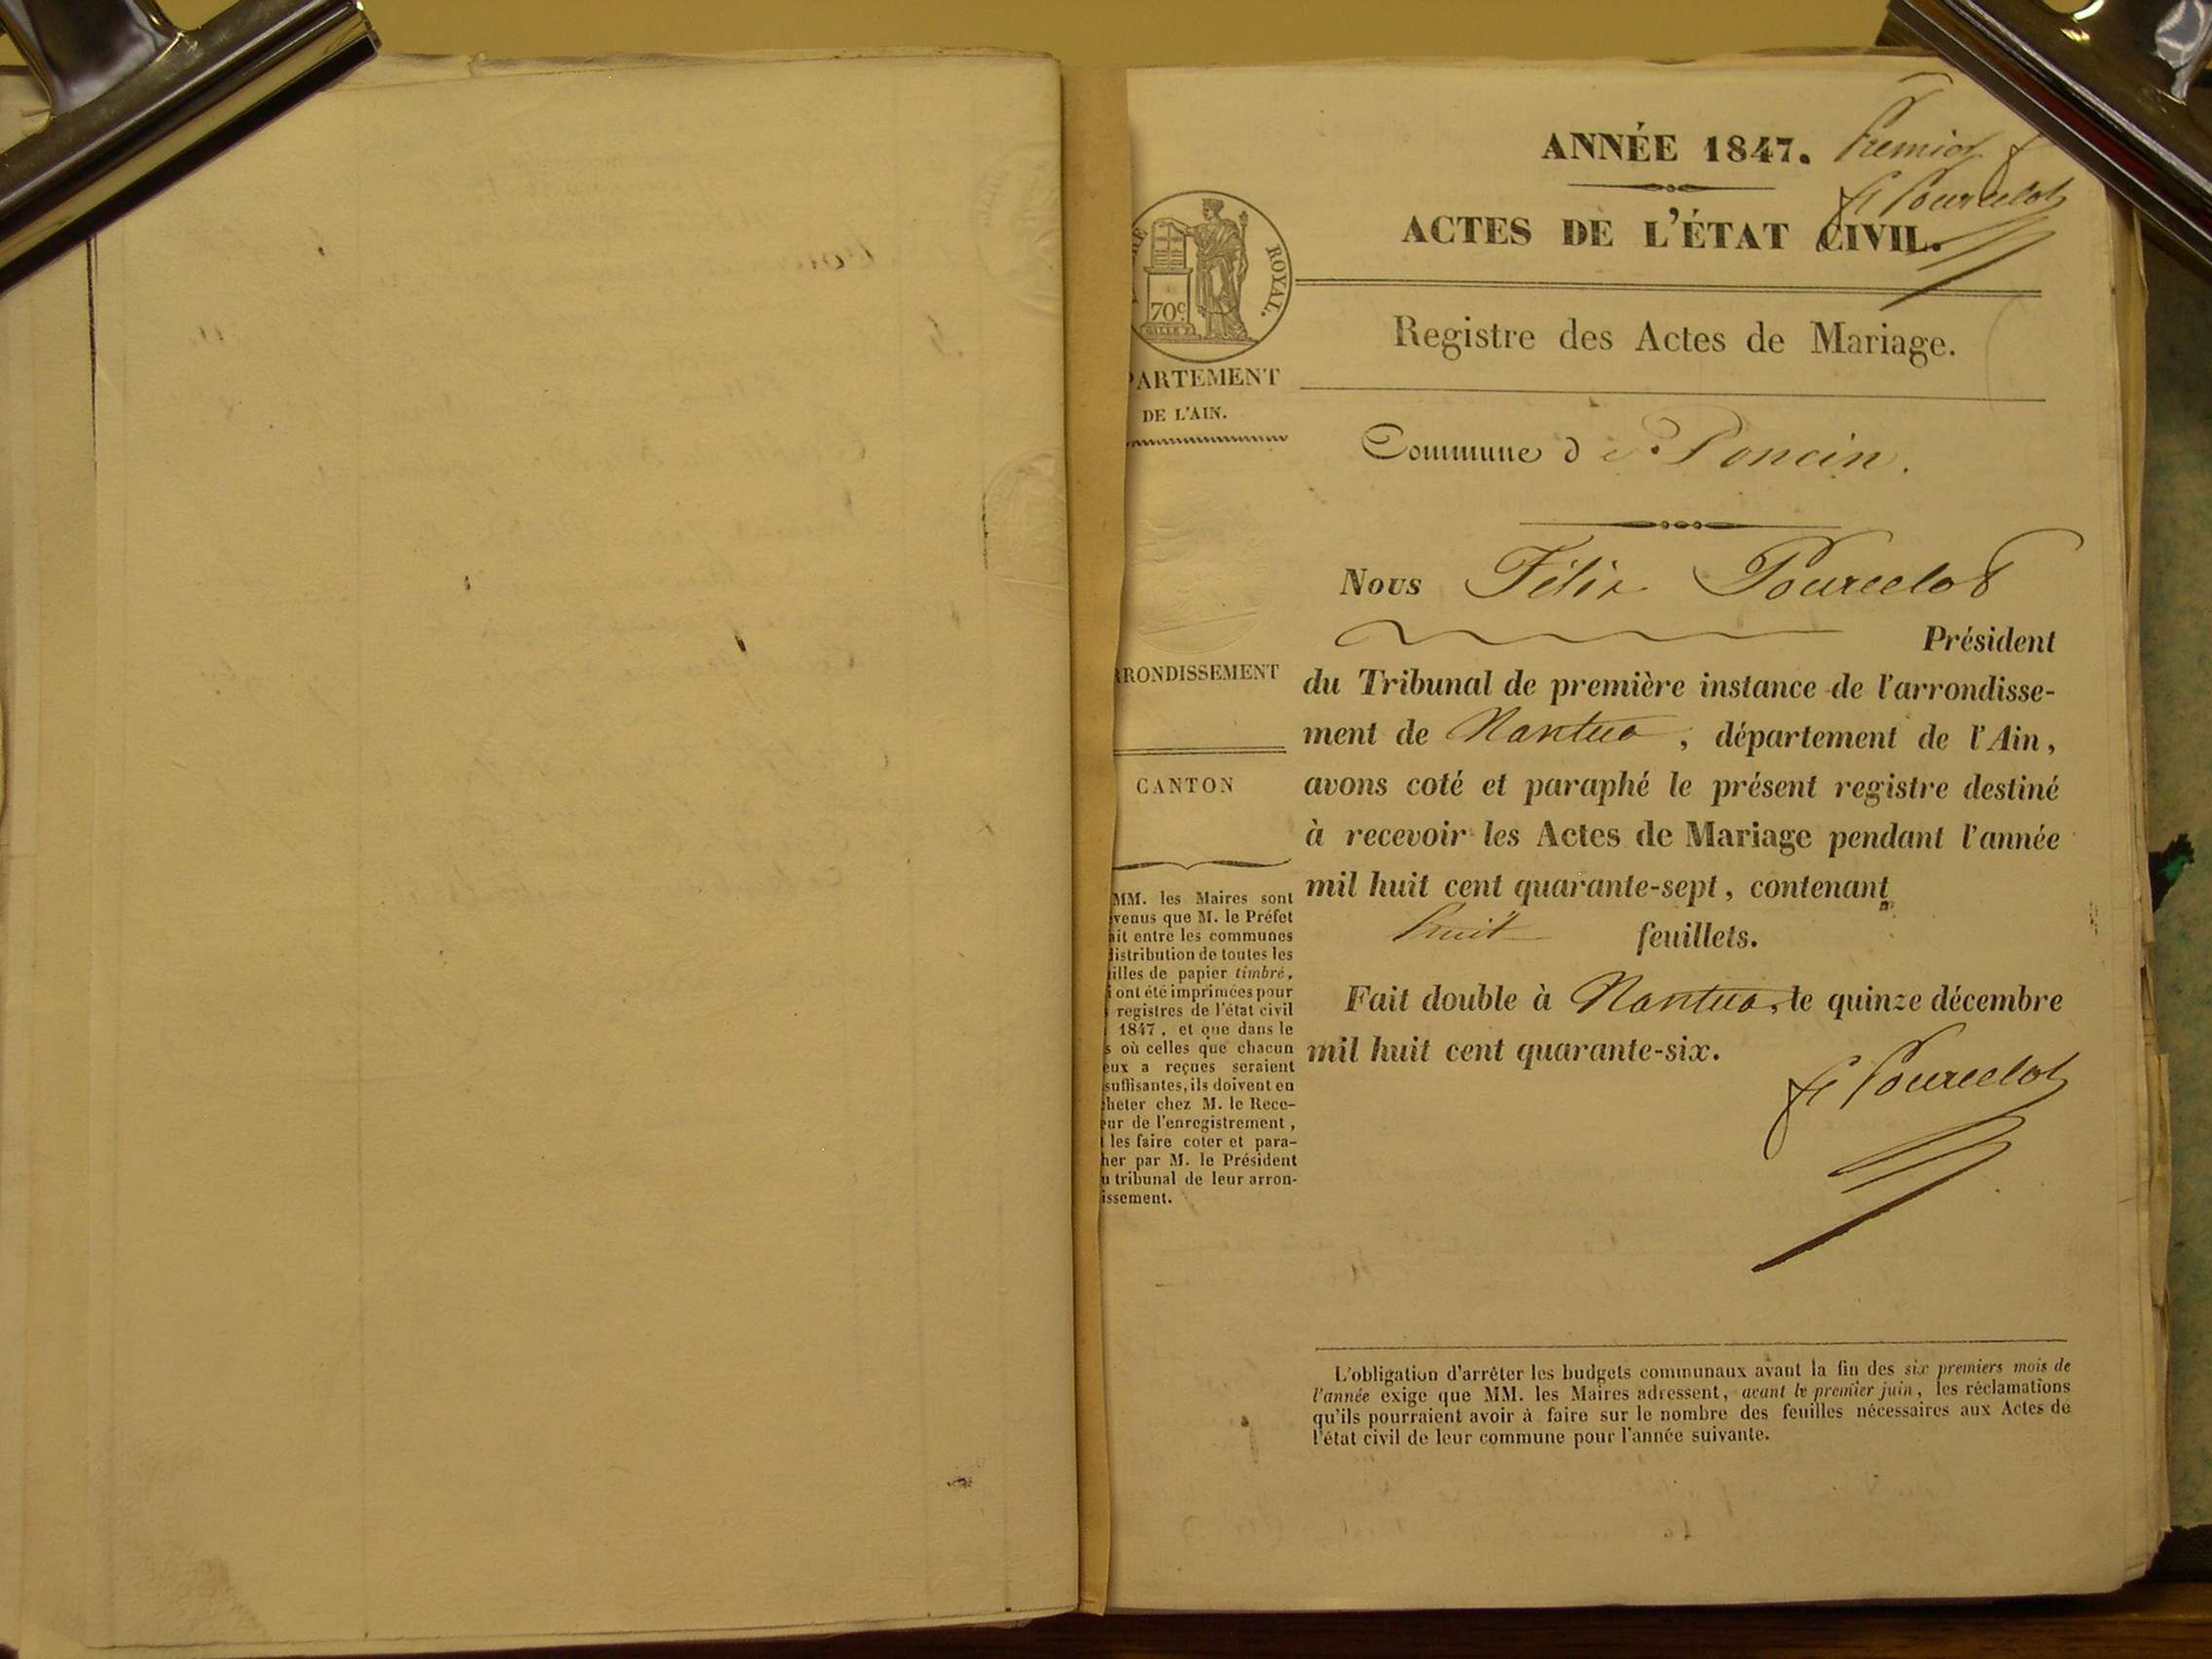 ANNÉE 1847. Premier f
F Pourcelot
ACTES DE L'ÉTAT CIVIL.
ROYAL.
70c
Registre des Actes de Mariage.
PARTEMENT
DE L'AIN.
Commune de Poncin.
Nous Félix Pourcelot
Président
RONDISSEMENT
du Tribunal de première instance de l'arrondisse-
ment de Nantua, département de l'Ain,
CANTON
avons coté et paraphé le présent registre destiné
à recevoir les Actes de Mariage pendant l'année
mil huit cent quarante-sept, contenant
huit feuillets.
Fait double à Nantua, le quinze décembre
mil huit cent quarante-six.
F Pourcelot
MM. les Maires sont
venus que M. le Préfet
ait entre les communes
distribution de toutes les
illes de papier timbré,
i ont été imprimées pour
registres de l'état civil
1847, et que dans le
s où celles que chacun
eux a reçues seraient
suffisantes, ils doivent en
heter chez M. le Rece-
ur de l'enregistrement,
les faire coter et para-
her par M. le Président
u tribunal de leur arron-
issement.
L'obligation d'arrêter les budgets communaux avant la fin des six premiers mois de
l'année exige que MM. les Maires adressent, avant le premier juin, les réclamations
qu'ils pourraient avoir à faire sur le nombre des feuilles nécessaires aux Actes de
l'état civil de leur commune pour l'année suivante.